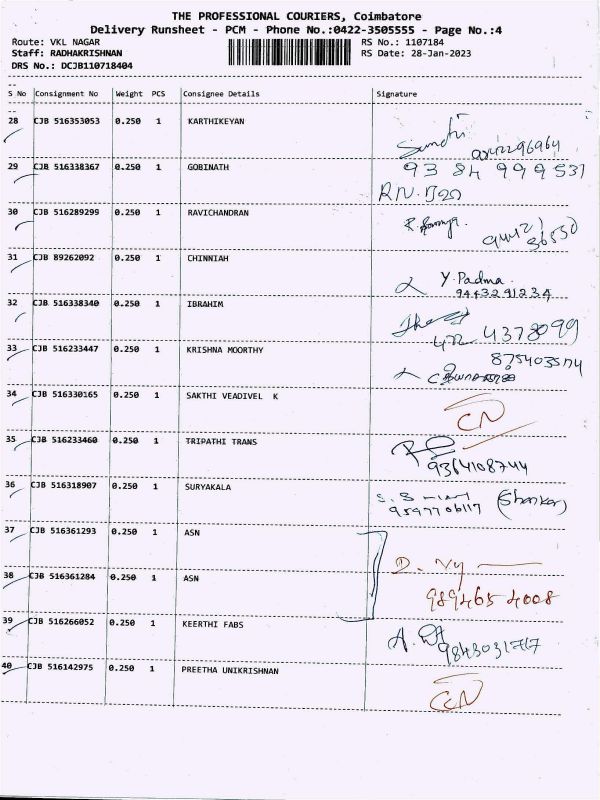 THE PROFESSIONAL COURIERS, Coimbatore
Delivery Runsheet - PCM - Phone No.:0422-3505555 - Page No.:4
Route: VKL NAGAR RS No.: 1107184
Staff: RADHAKRISHNAN RS Date: 28-Jan-2023
DRS No.: DCJB110718404
S No Consignment No Weight PCS Consignee Details Signature
28 CJB 516353053 0.250 1 KARTHIKEYAN
29 CJB 516338367 0.250 1 GOBINATH 93 84 999531
30 CJB 516289299 0.250 1 RAVICHANDRAN
31 CJB 89262092 0.250 1 CHINNIAH Y. Padma.
9443291234
32 CJB 516338340 0.250 1 IBRAHIM
4378099
33 CJB 516233447 0.250 1 KRISHNA MOORTHY
34 CJB 516330165 0.250 1 SAKTHI VEADIVEL K CN
35 CJB 516233460 0.250 1 TRIPATHI TRANS
9364108744
36 CJB 516318907 0.250 1 SURYAKALA (Shankar)
9597706117
37 CJB 516361293 0.250 1 ASN
38 CJB 516361284 0.250 1 ASN
989465 4008
39 CJB 516266052 0.250 1 KEERTHI FABS
9843031717
40 CJB 516142975 0.250 1 PREETHA UNIKRISHNAN CN